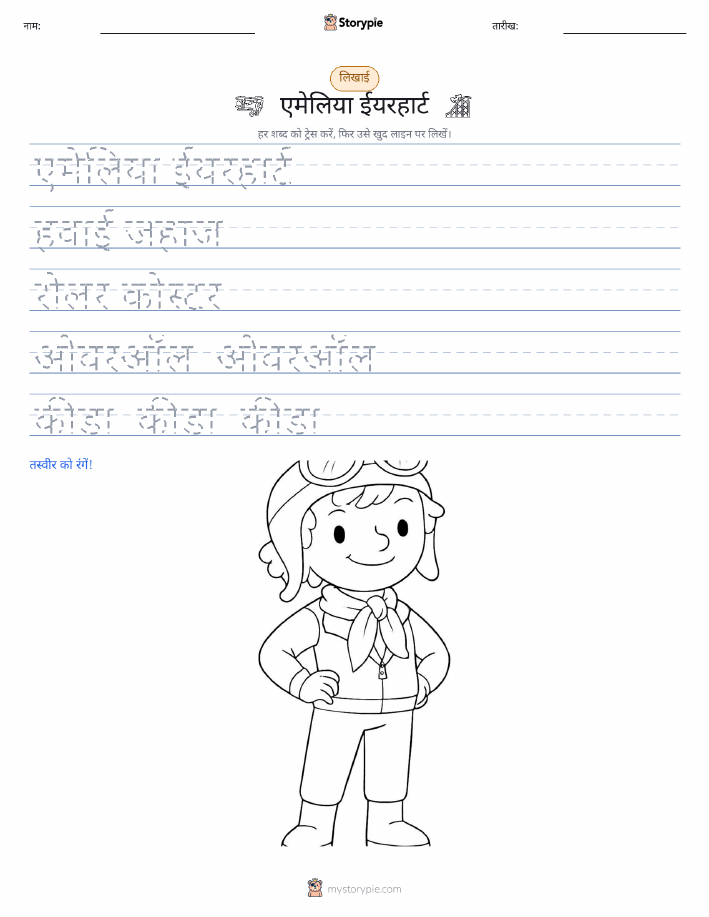 नाम:
Storypie
तारीख:
लिखाई
एमेलिया ईयरहार्ट
हर शब्द को ट्रेस करें, फिर उसे खुद लाइन पर लिखें।
एमेलिया ईयरहार्ट
हवाई जहाज
रोलर कोस्टर
ओवरऑल ओवरऑल
कीडा कीडा कीडा
तस्वीर को रंगें!
mystorypie.com